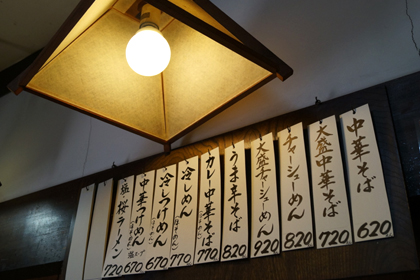 中華そば
620
大盛中華そば
720
チャーシューめん
820
大盛チャーシューめん
920
うま辛そば
820
カレー中華そば
770
冷しめん
770
冷しつけめん
670
中華つけめん
670
桜ラーメン
720